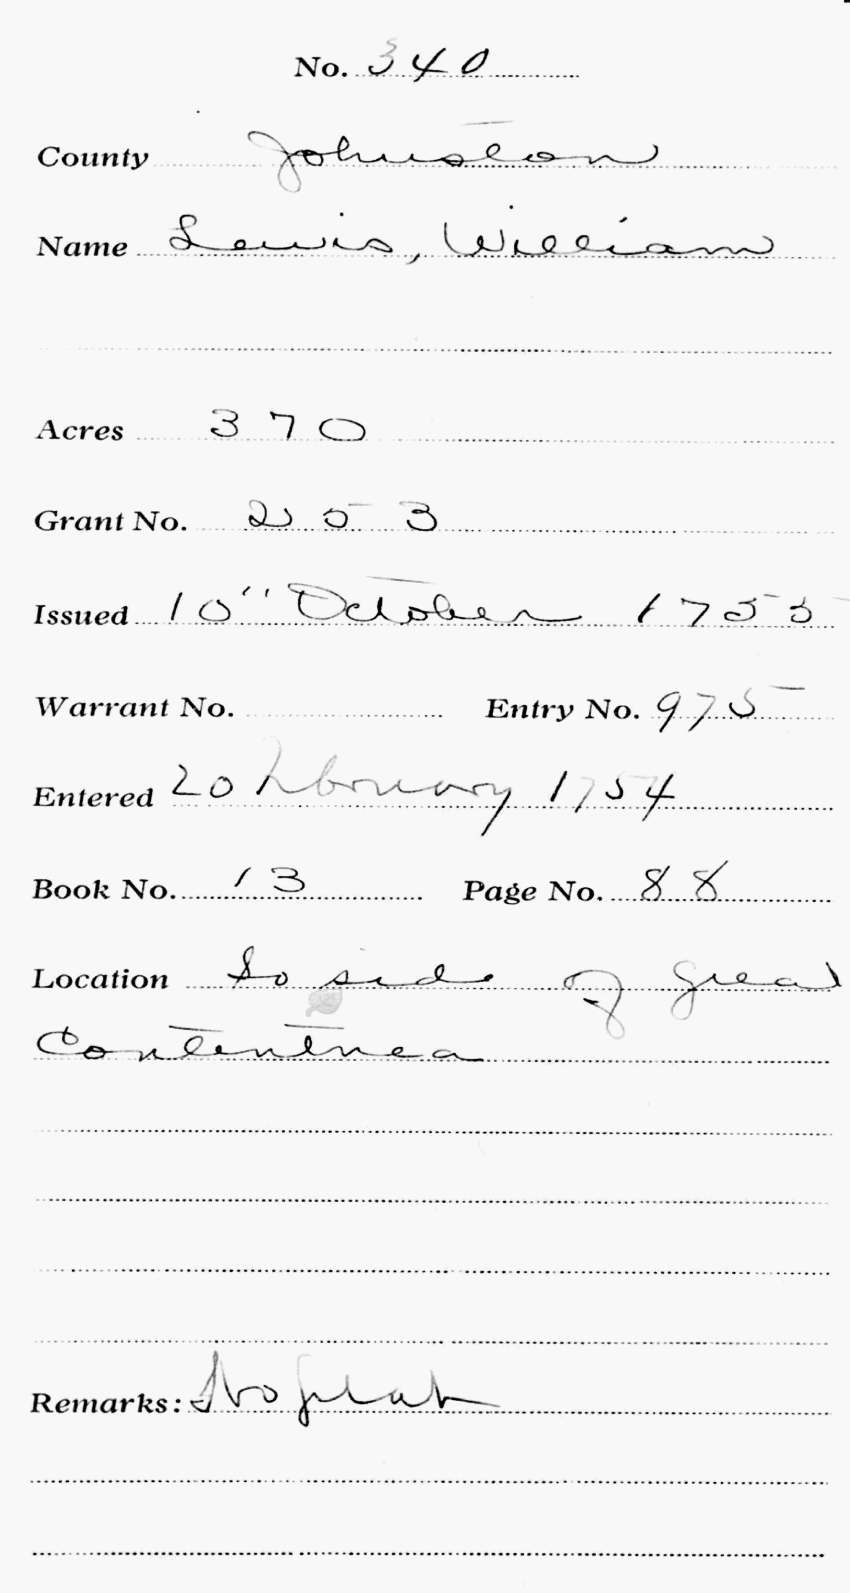 No. 340
County Johnston
Name Lewis, William
Acres 370
Grant No. 253
Issued 10" October 1755
Warrant No. Entry No. 975
Entered 20 February 1754
Book No. 13 Page No. 88
Location So side of great
Contentnea
Remarks: No plat